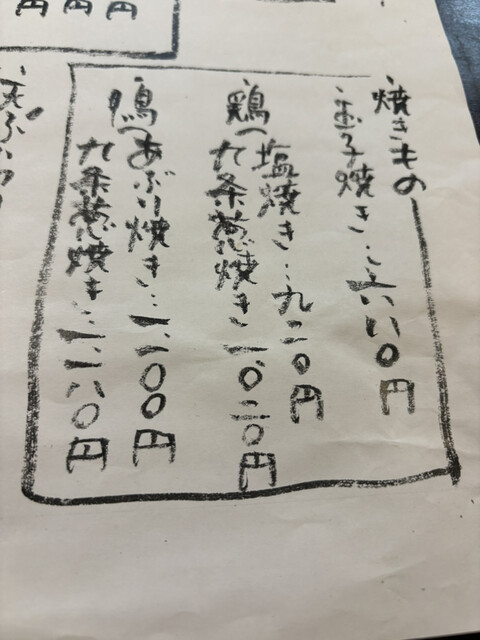 円
円
円
焼きもの
玉子焼き…
鶏
塩焼き…九二〇円
九条葱焼き 一、〇二〇円
鴨
あぶり焼き…一、一〇〇円
九条葱焼き…一、一八〇円
天ぷら